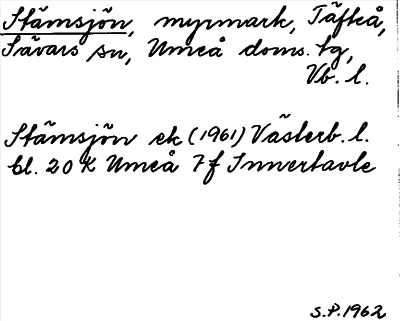 Stämsjön, myrmark, Täfteå,
Sävars sn, Umeå doms. tg,
Vb. l.
Stämsjön ek (1961) Västerb. l.
bl. 20 K Umeå 7f Innertavle
S.P. 1962